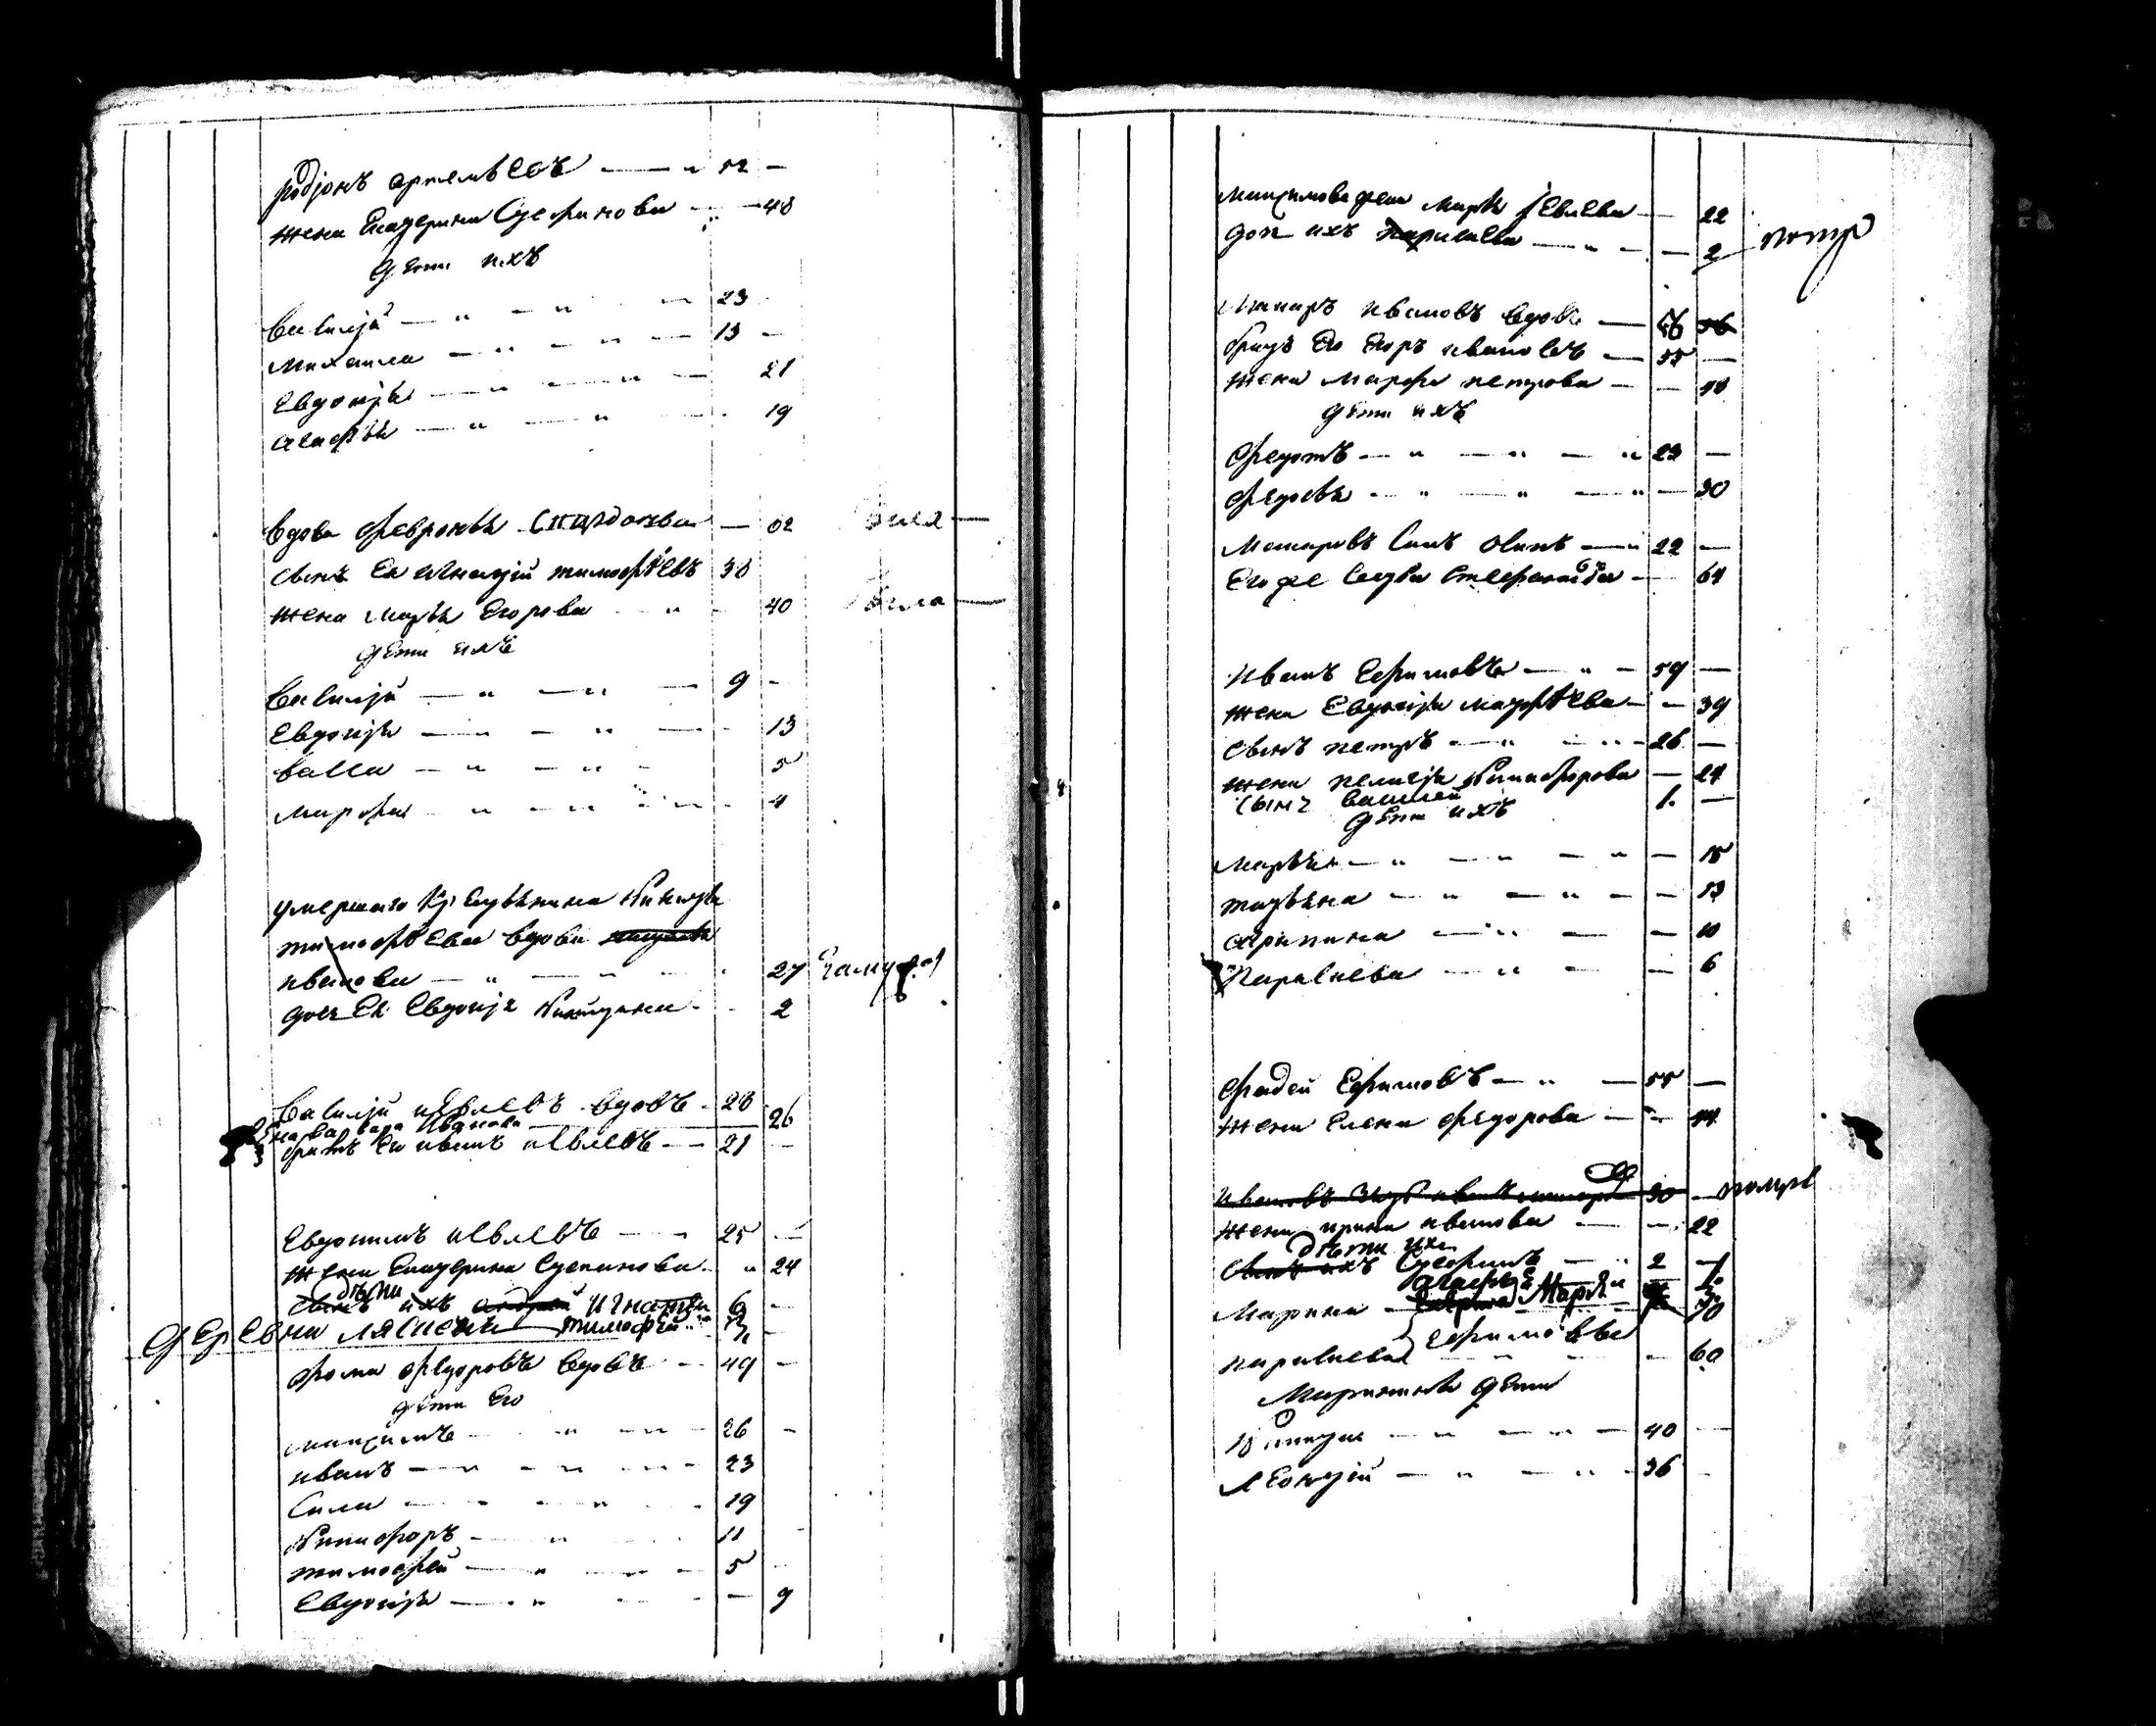 родіонъ артемьевъ — 52 —
жена Екатерина Сте фанова — 48
дети ихъ
Василій — 23
михаила — 13 —
Евдокія — 21
агафья — 19
вдова февронья Спиридонова — 62
сынъ Ея игнатій тимофѣевъ 38
жена марья Егорова — 40
дети ихъ
Василій — 9 —
Евдокія — 13
васса — 5
марфа — 4
умершаго крестьянина Никиты
тимофѣева вдова
иванова — 27
дочь Ея Евдокія Никитина — 2
Василій иевлевъ вдовъ 28
жена вара Иванова 26
братъ Его иванъ иевлевъ — 21 —
Евдокимъ иевлевъ — 25 —
жена Екатерина Степанова 24
дѣти
сынъ ихъ андрей Игнатій 6 —
тимофей 3 —
деревни
фома федоровъ вдовъ — 49 —
дети Его
максимъ — 26 —
иванъ — 23
Сила — 19
Никифоръ — 11
тимофей — 5
Евдокія — 9
максимова жена марья Иевлева — 22
дочь ихъ параскева — 2 помр
макаръ ивановъ вдовъ — 56
братъ Его Егоръ ивановъ — 55 —
жена марфа петрова — 48
дети ихъ
федотъ — 23 —
федосья — 30
макаровъ сынъ осипъ — 22 —
Его же сестра стефанида — 64
иванъ Ефимовъ — 59 —
жена Евдокія матфѣева — 39
сынъ петръ — 26 —
жена пелагія Никифорова — 24
сынъ василей 1 —
дети ихъ
марья — 15
татьяна — 13
агрипина — 10
параскева — 6
фадей Ефимовъ — 55 —
жена Елена федорова — 44
30 — помре
жена ирина иванова — 22
дѣти ихъ
сынъ ихъ Стефанъ — 2 —
агафья 1
Марья 3
Марина — 70
Ефимовы
параскева — 60
Маринины дети
Никита — 40 —
леонтій — 36